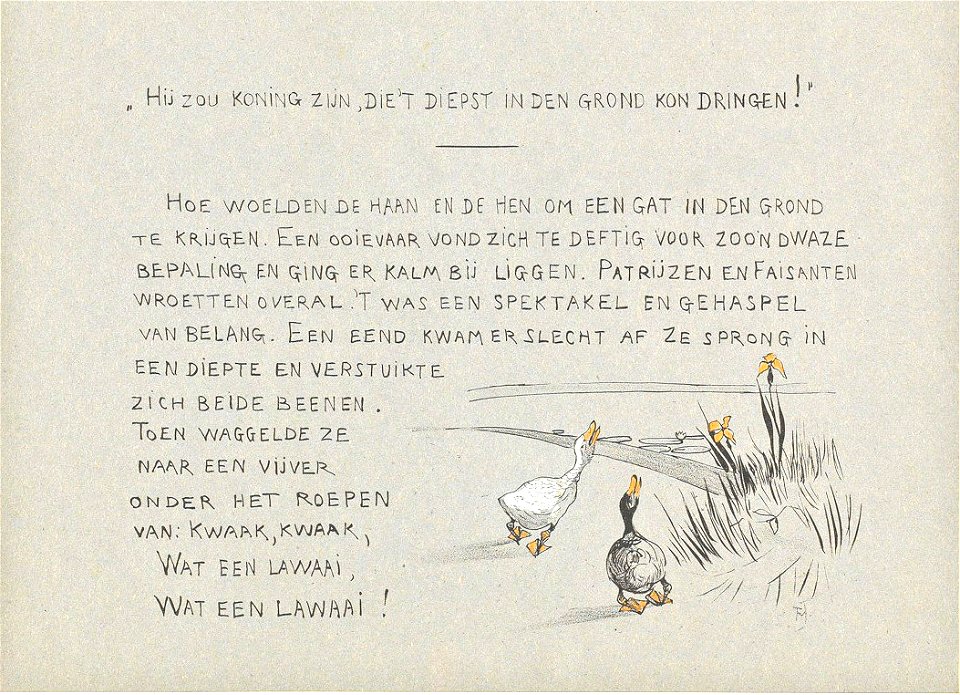 „Hij zou koning zijn, die 't diepst in den grond kon dringen!"
Hoe woelden de haan en de hen om een gat in den grond
te krijgen. Een ooievaar vond zich te deftig voor zoo'n dwaze
bepaling en ging er kalm bij liggen. Patrijzen en faisanten
wroetten overal. 't was een spektakel en gehaspel
van belang. Een eend kwam er slecht af ze sprong in
een diepte en verstuikte
zich beide beenen.
Toen waggelde ze
naar een vijver
onder het roepen
van: Kwaak, kwaak,
Wat een lawaai,
Wat een lawaai!